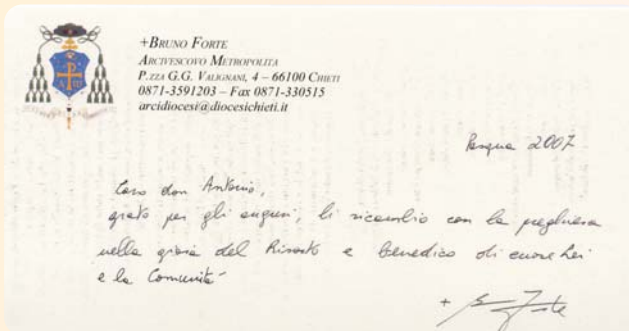 +BRUNO FORTE
ARCIVESCOVO METROPOLITA
P.ZZA G.G. VALIGNANI, 4 – 66100 CHIETI
0871-3591203 – Fax 0871-330515
arcidiocesi@diocesichieti.it
Pasqua 2007
Caro don Antonio,
grato per gli auguri, li ricambio con la preghiera
nella gioia del Risorto e benedico di cuore Lei
e la Comunità
+ Bruno Forte